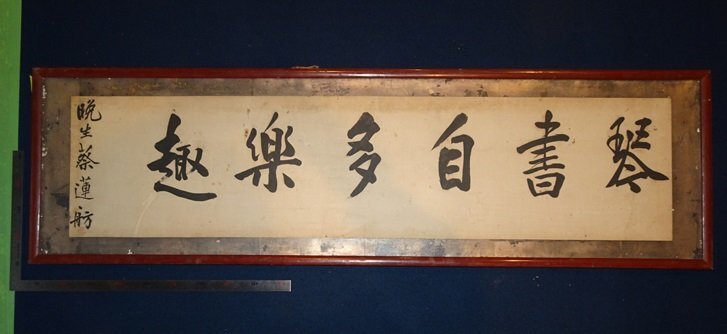 琴書自多樂趣
晚生蔡蓮舫